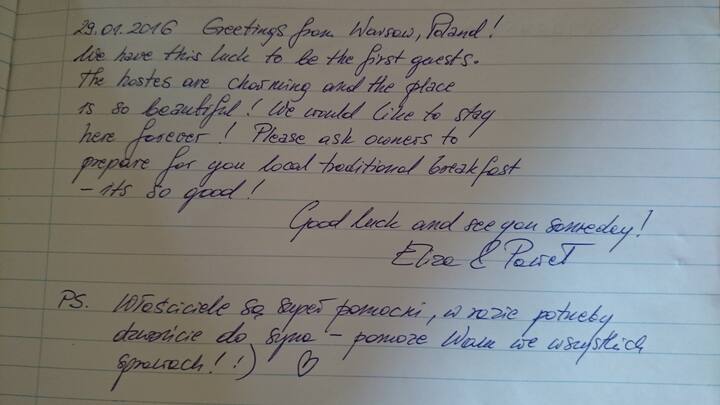 29.01.2016 Greetings from Warsow, Poland!
We have this luck to be the first guests.
The hostes are charming and the place
is so beautiful! We would like to stay
here forever! Please ask owners to
prepare for you local traditional breakfast
- its so good!
Good luck and see you someday!
Eliza & Paweł
PS. Właściciele są super pomocni, w razie potrzeby
dzwońcie do syna - pomoże Wam we wszystkich
sprawach! :) ♡